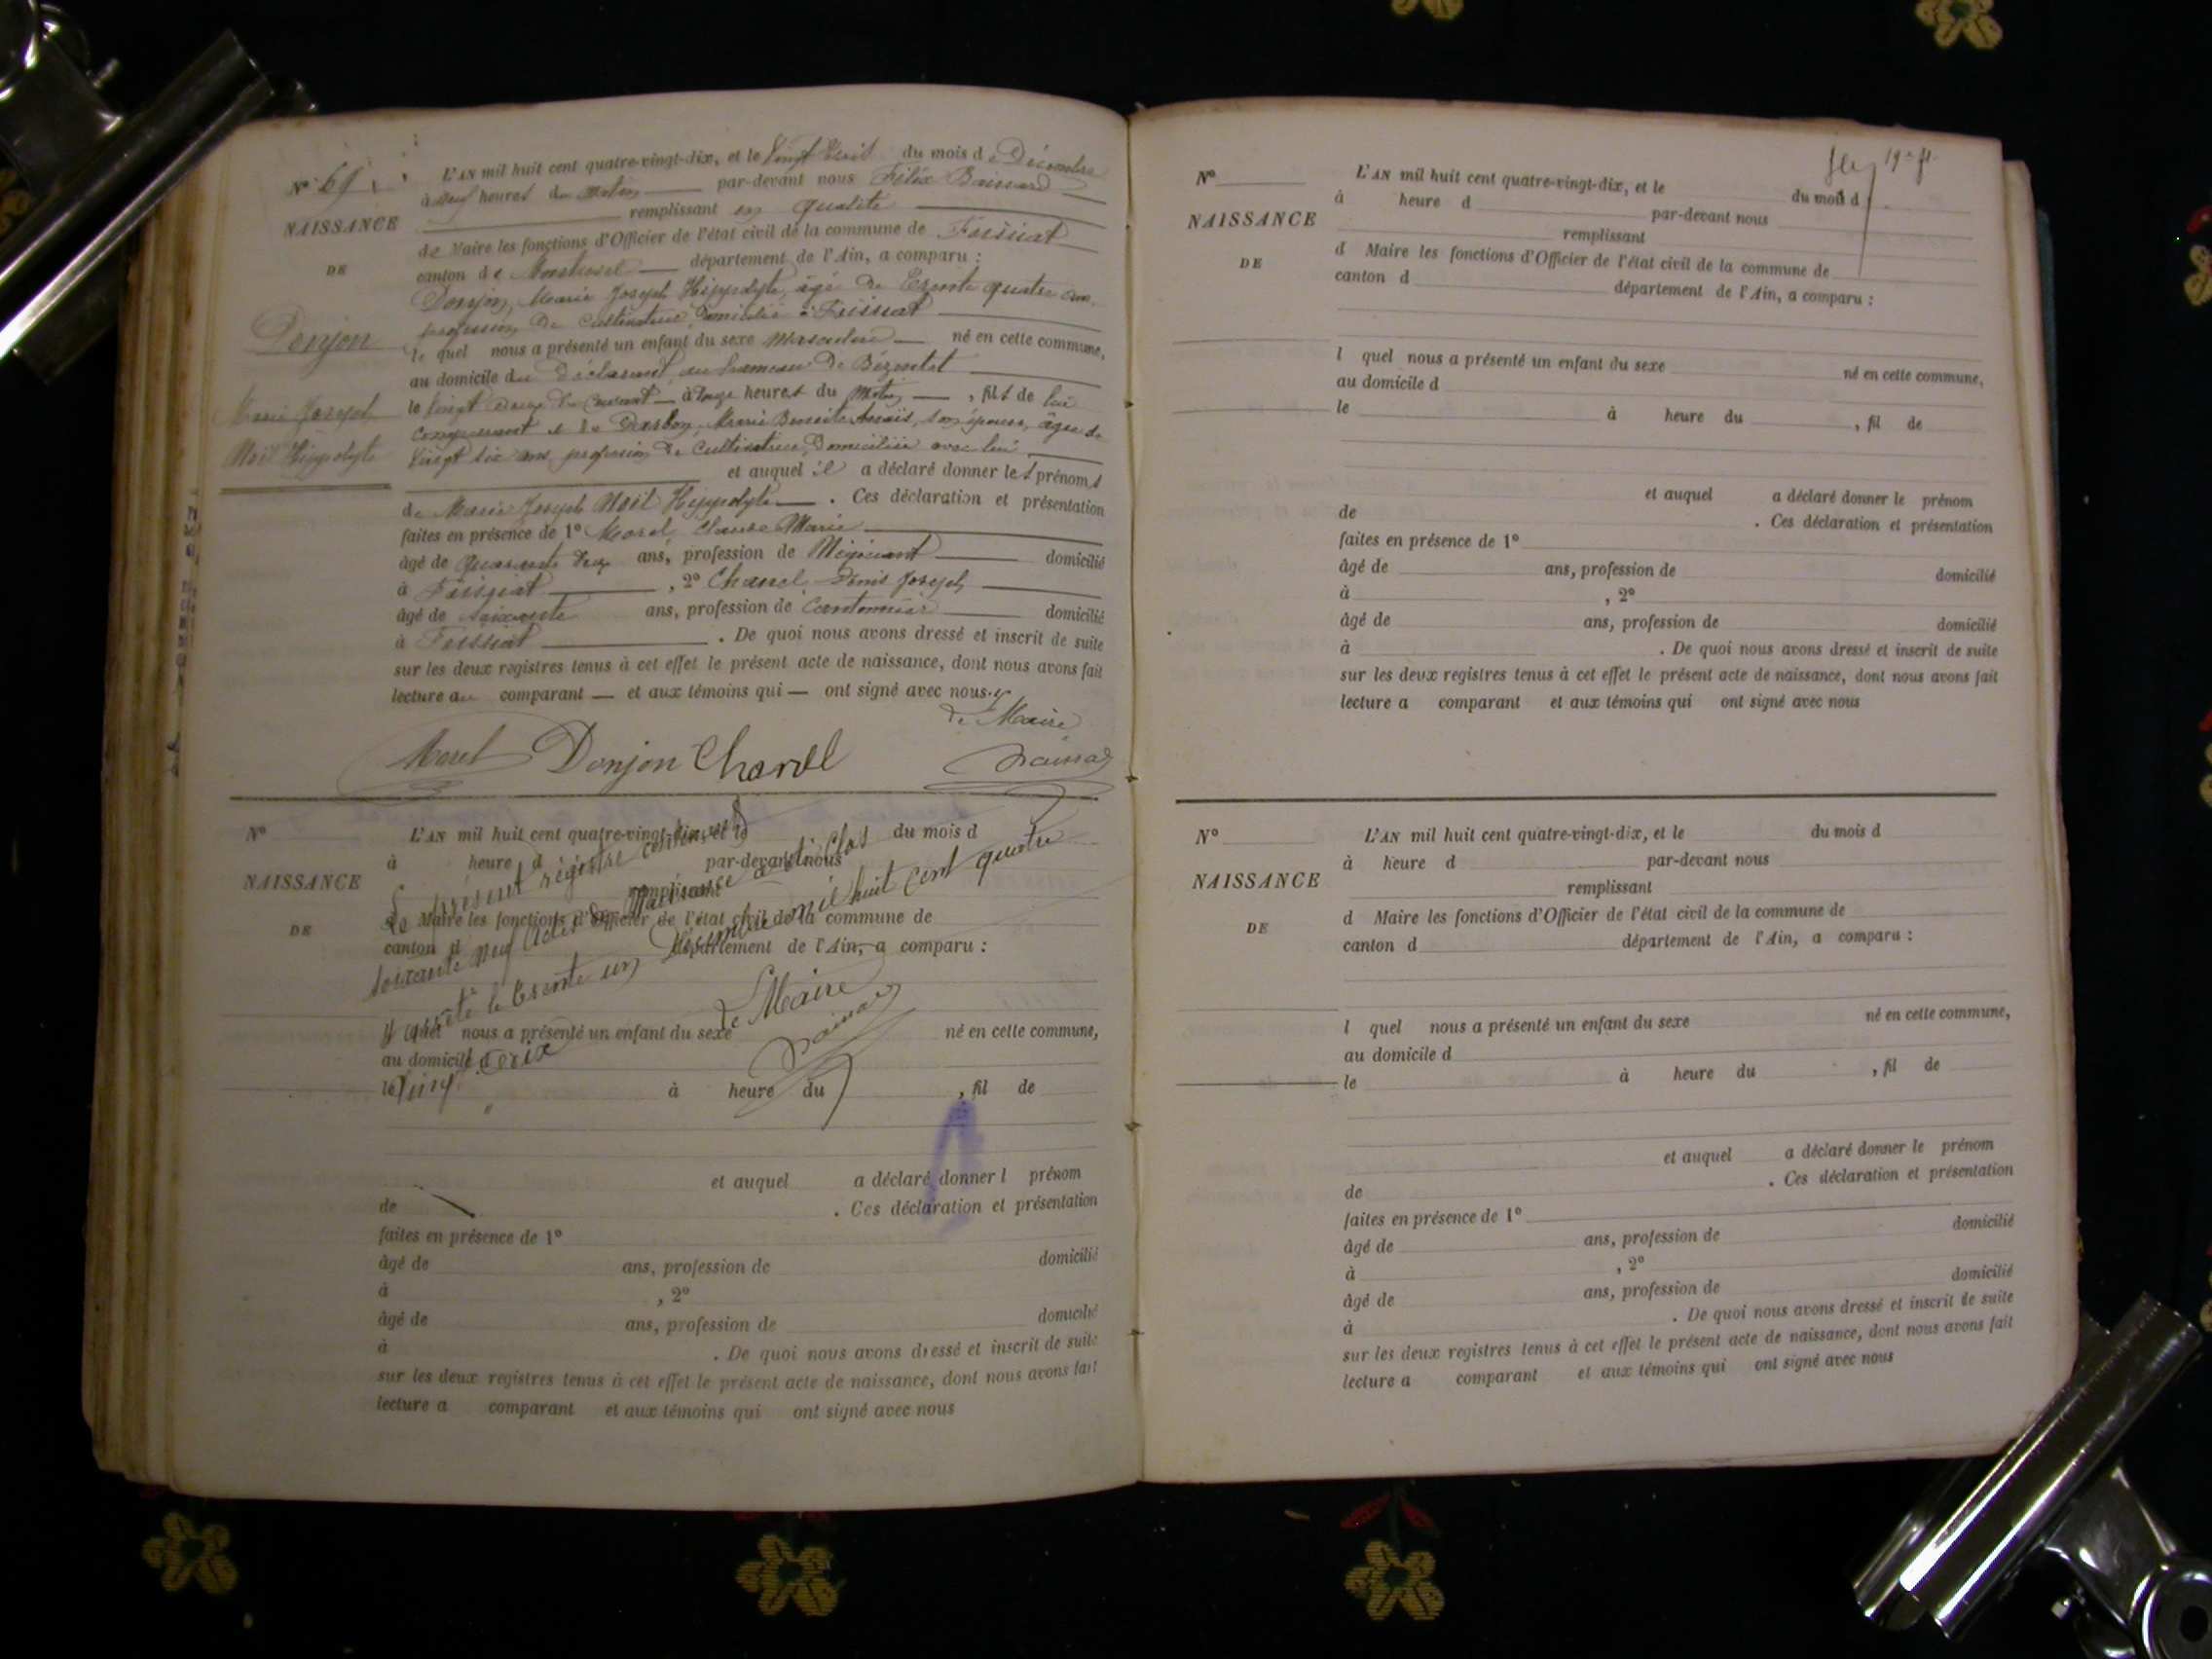 N° 69
NAISSANCE
DE
Donjon
Marie Joseph
Noël Hippolyte
L'AN mil huit cent quatre-vingt-dix, et le Vingt huit du mois de Décembre
à neuf heures du matin par-devant nous Félix Baissard
remplissant en qualité
de Maire les fonctions d'Officier de l'état civil de la commune de Foissiat
canton de Montrevel département de l'Ain, a comparu :
Donjon, Marie Joseph Hippolyte, âgé de Trente quatre ans,
profession de cultivateur, domicilié à Foissiat
le quel nous a présenté un enfant du sexe Masculin né en cette commune,
au domicile du Déclarant, au hameau de
le Vingt du Courant à heures du Matin , fils de lui
Comparant et de Marie Benoite son épouse, âgée de
Vingt six ans, profession de Cultivatrice, Domiciliée avec lui
et auquel il a déclaré donner les prénoms
de Marie Joseph Noël Hippolyte . Ces déclaration et présentation
faites en présence de 1° Morel, Claude Marie
âgé de Quarante ans, profession de Négociant domicilié
à Foissiat , 2° Chanel Denis Joseph,
âgé de soixante ans, profession de Cantonnier domicilié
à Foissiat . De quoi nous avons dressé et inscrit de suite
sur les deux registres tenus à cet effet le présent acte de naissance, dont nous avons fait
lecture au comparant et aux témoins qui ont signé avec nous.
Le Maire
Morel Donjon Chanel Baissard
N°
NAISSANCE
DE
L'AN mil huit cent quatre-vingt-dix, et le du mois d
à heure d par-devant nous
remplissant
d Maire les fonctions d'Officier de l'état civil de la commune de
canton d département de l'Ain, a comparu :
Le présent registre contenant
soixante neuf actes de Naissance a été Clos
et arrêté le trente un Décembre mil huit cent quatre
vingt dix
Le Maire
Baissard
l quel nous a présenté un enfant du sexe né en cette commune,
au domicile d
le à heure du , fil de
et auquel a déclaré donner l prénom
de . Ces déclaration et présentation
faites en présence de 1°
âgé de ans, profession de domicilié
à , 2°
âgé de ans, profession de domicilié
à . De quoi nous avons dressé et inscrit de suite
sur les deux registres tenus à cet effet le présent acte de naissance, dont nous avons fait
lecture a comparant et aux témoins qui ont signé avec nous
N°
NAISSANCE
DE
L'AN mil huit cent quatre-vingt-dix, et le du mois d
à heure d par-devant nous
remplissant
d Maire les fonctions d'Officier de l'état civil de la commune de
canton d département de l'Ain, a comparu :
l quel nous a présenté un enfant du sexe né en cette commune,
au domicile d
le à heure du , fil de
et auquel a déclaré donner le prénom
de . Ces déclaration et présentation
faites en présence de 1°
âgé de ans, profession de domicilié
à , 2°
âgé de ans, profession de domicilié
à . De quoi nous avons dressé et inscrit de suite
sur les deux registres tenus à cet effet le présent acte de naissance, dont nous avons fait
lecture a comparant et aux témoins qui ont signé avec nous
N°
NAISSANCE
DE
L'AN mil huit cent quatre-vingt-dix, et le du mois d
à heure d par-devant nous
remplissant
d Maire les fonctions d'Officier de l'état civil de la commune de
canton d département de l'Ain, a comparu :
l quel nous a présenté un enfant du sexe né en cette commune,
au domicile d
le à heure du , fil de
et auquel a déclaré donner le prénom
de . Ces déclaration et présentation
faites en présence de 1°
âgé de ans, profession de domicilié
à , 2°
âgé de ans, profession de domicilié
à . De quoi nous avons dressé et inscrit de suite
sur les deux registres tenus à cet effet le présent acte de naissance, dont nous avons fait
lecture a comparant et aux témoins qui ont signé avec nous